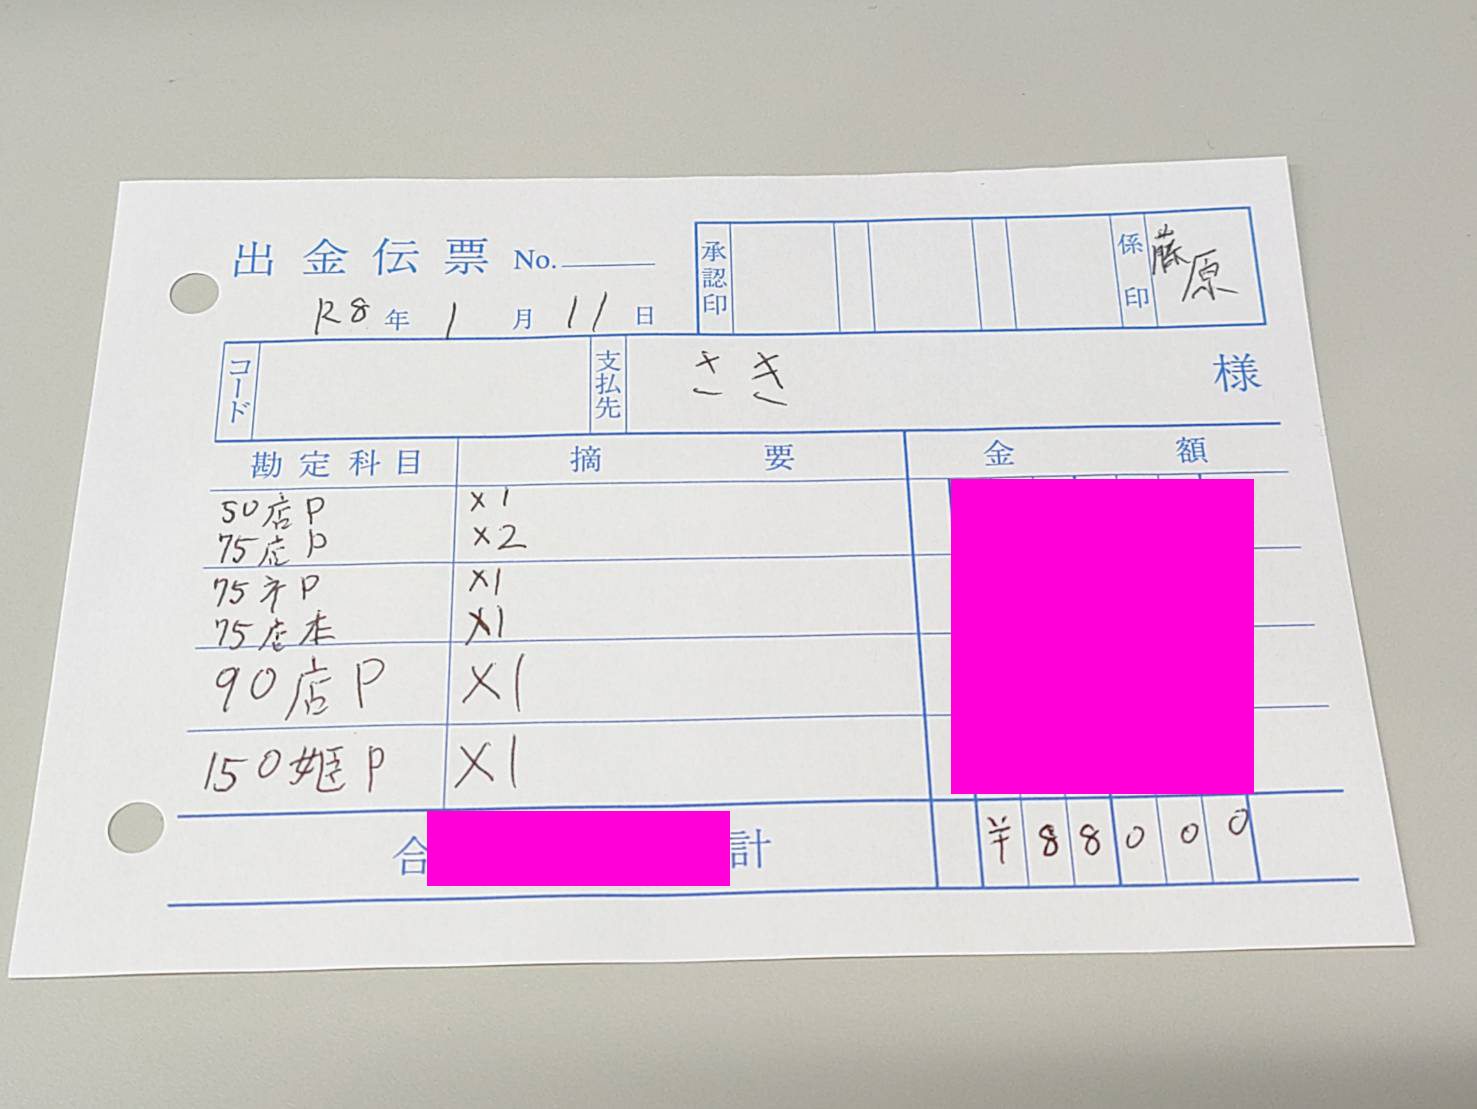 出金伝票 No.
承認印
係印 藤原
R8年1月11日
コード
支払先 さき 様
勘定科目 摘要 金額
50店P ×1
75店P ×2
75ネP ×1
75店本 ×1
90店P ×1
150姫P ×1
合計 ¥88000